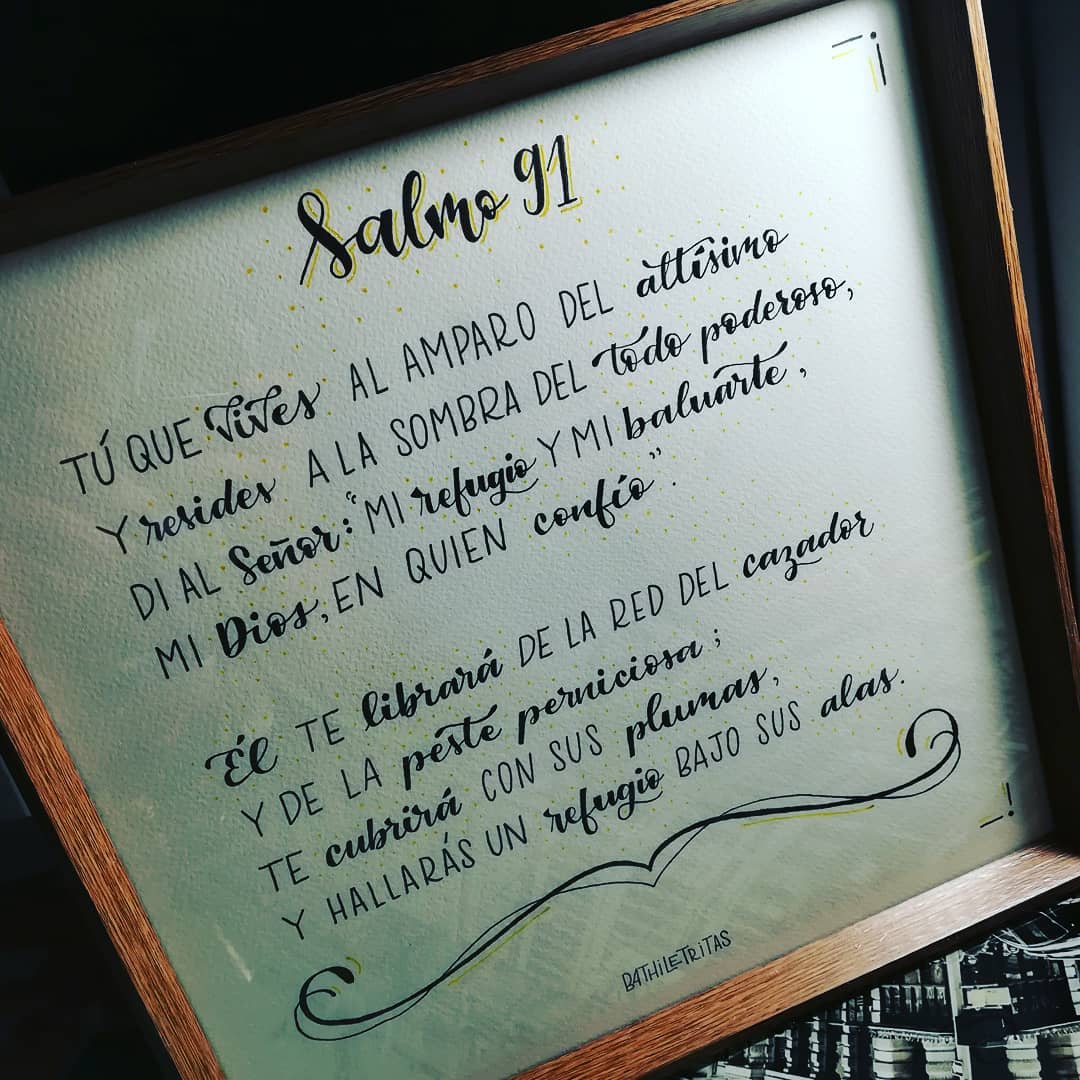 Salmo 91
TÚ QUE vives AL AMPARO DEL altísimo
Y resides A LA SOMBRA DEL todo poderoso,
DI AL Señor: "MI refugio Y MI baluarte,
MI Dios, EN QUIEN confío".
Él TE librará DE LA RED DEL cazador
Y DE LA peste perniciosa;
TE cubrirá CON SUS plumas,
Y HALLARÁS UN refugio BAJO SUS alas.
BATHILETRITAS